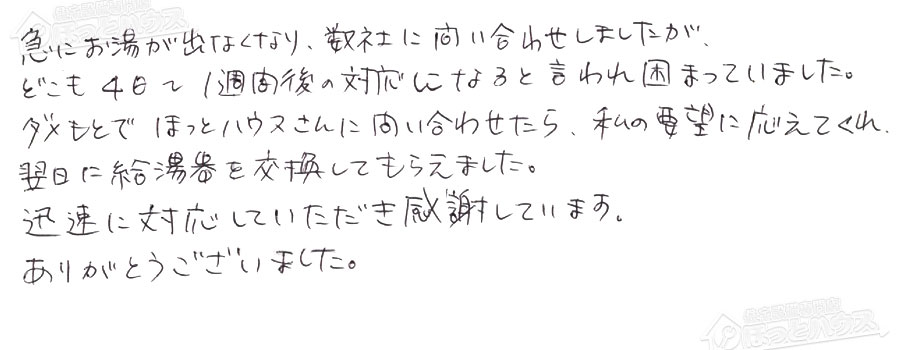 急にお湯が出なくなり、数社に問い合わせしましたが、
どこも4日〜1週間後の対応になると言われ困まっていました。
ダメもとでほっとハウスさんに問い合わせたら、私の要望に応えてくれ、
翌日に給湯器を交換してもらえました。
迅速に対応していただき感謝しています。
ありがとうございました。
ほっとハウス